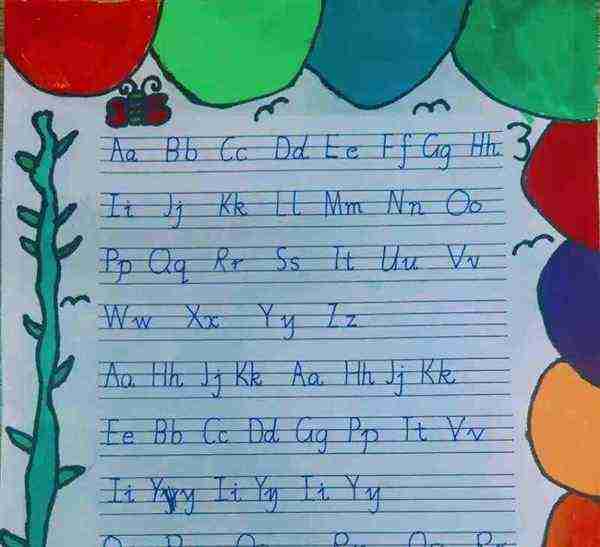 Aa Bb Cc Dd Ee Ff Gg Hh
Ii Jj Kk Ll Mm Nn Oo
Pp Qq Rr Ss Tt Uu Vv
Ww Xx Yy Zz
Aa Hh Jj Kk Aa Hh Jj Kk
Ee Bb Cc Dd Gg Pp Tt Vv
Ii Yy y Ii Yy Ii Yy